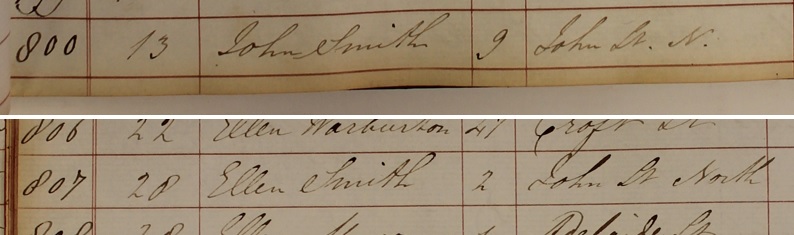 800 13 John Smith 9 John St. N.
806 22 Ellen Warburton 27 Croft St
807 28 Ellen Smith 2 John St North
Ellen Adelaide St